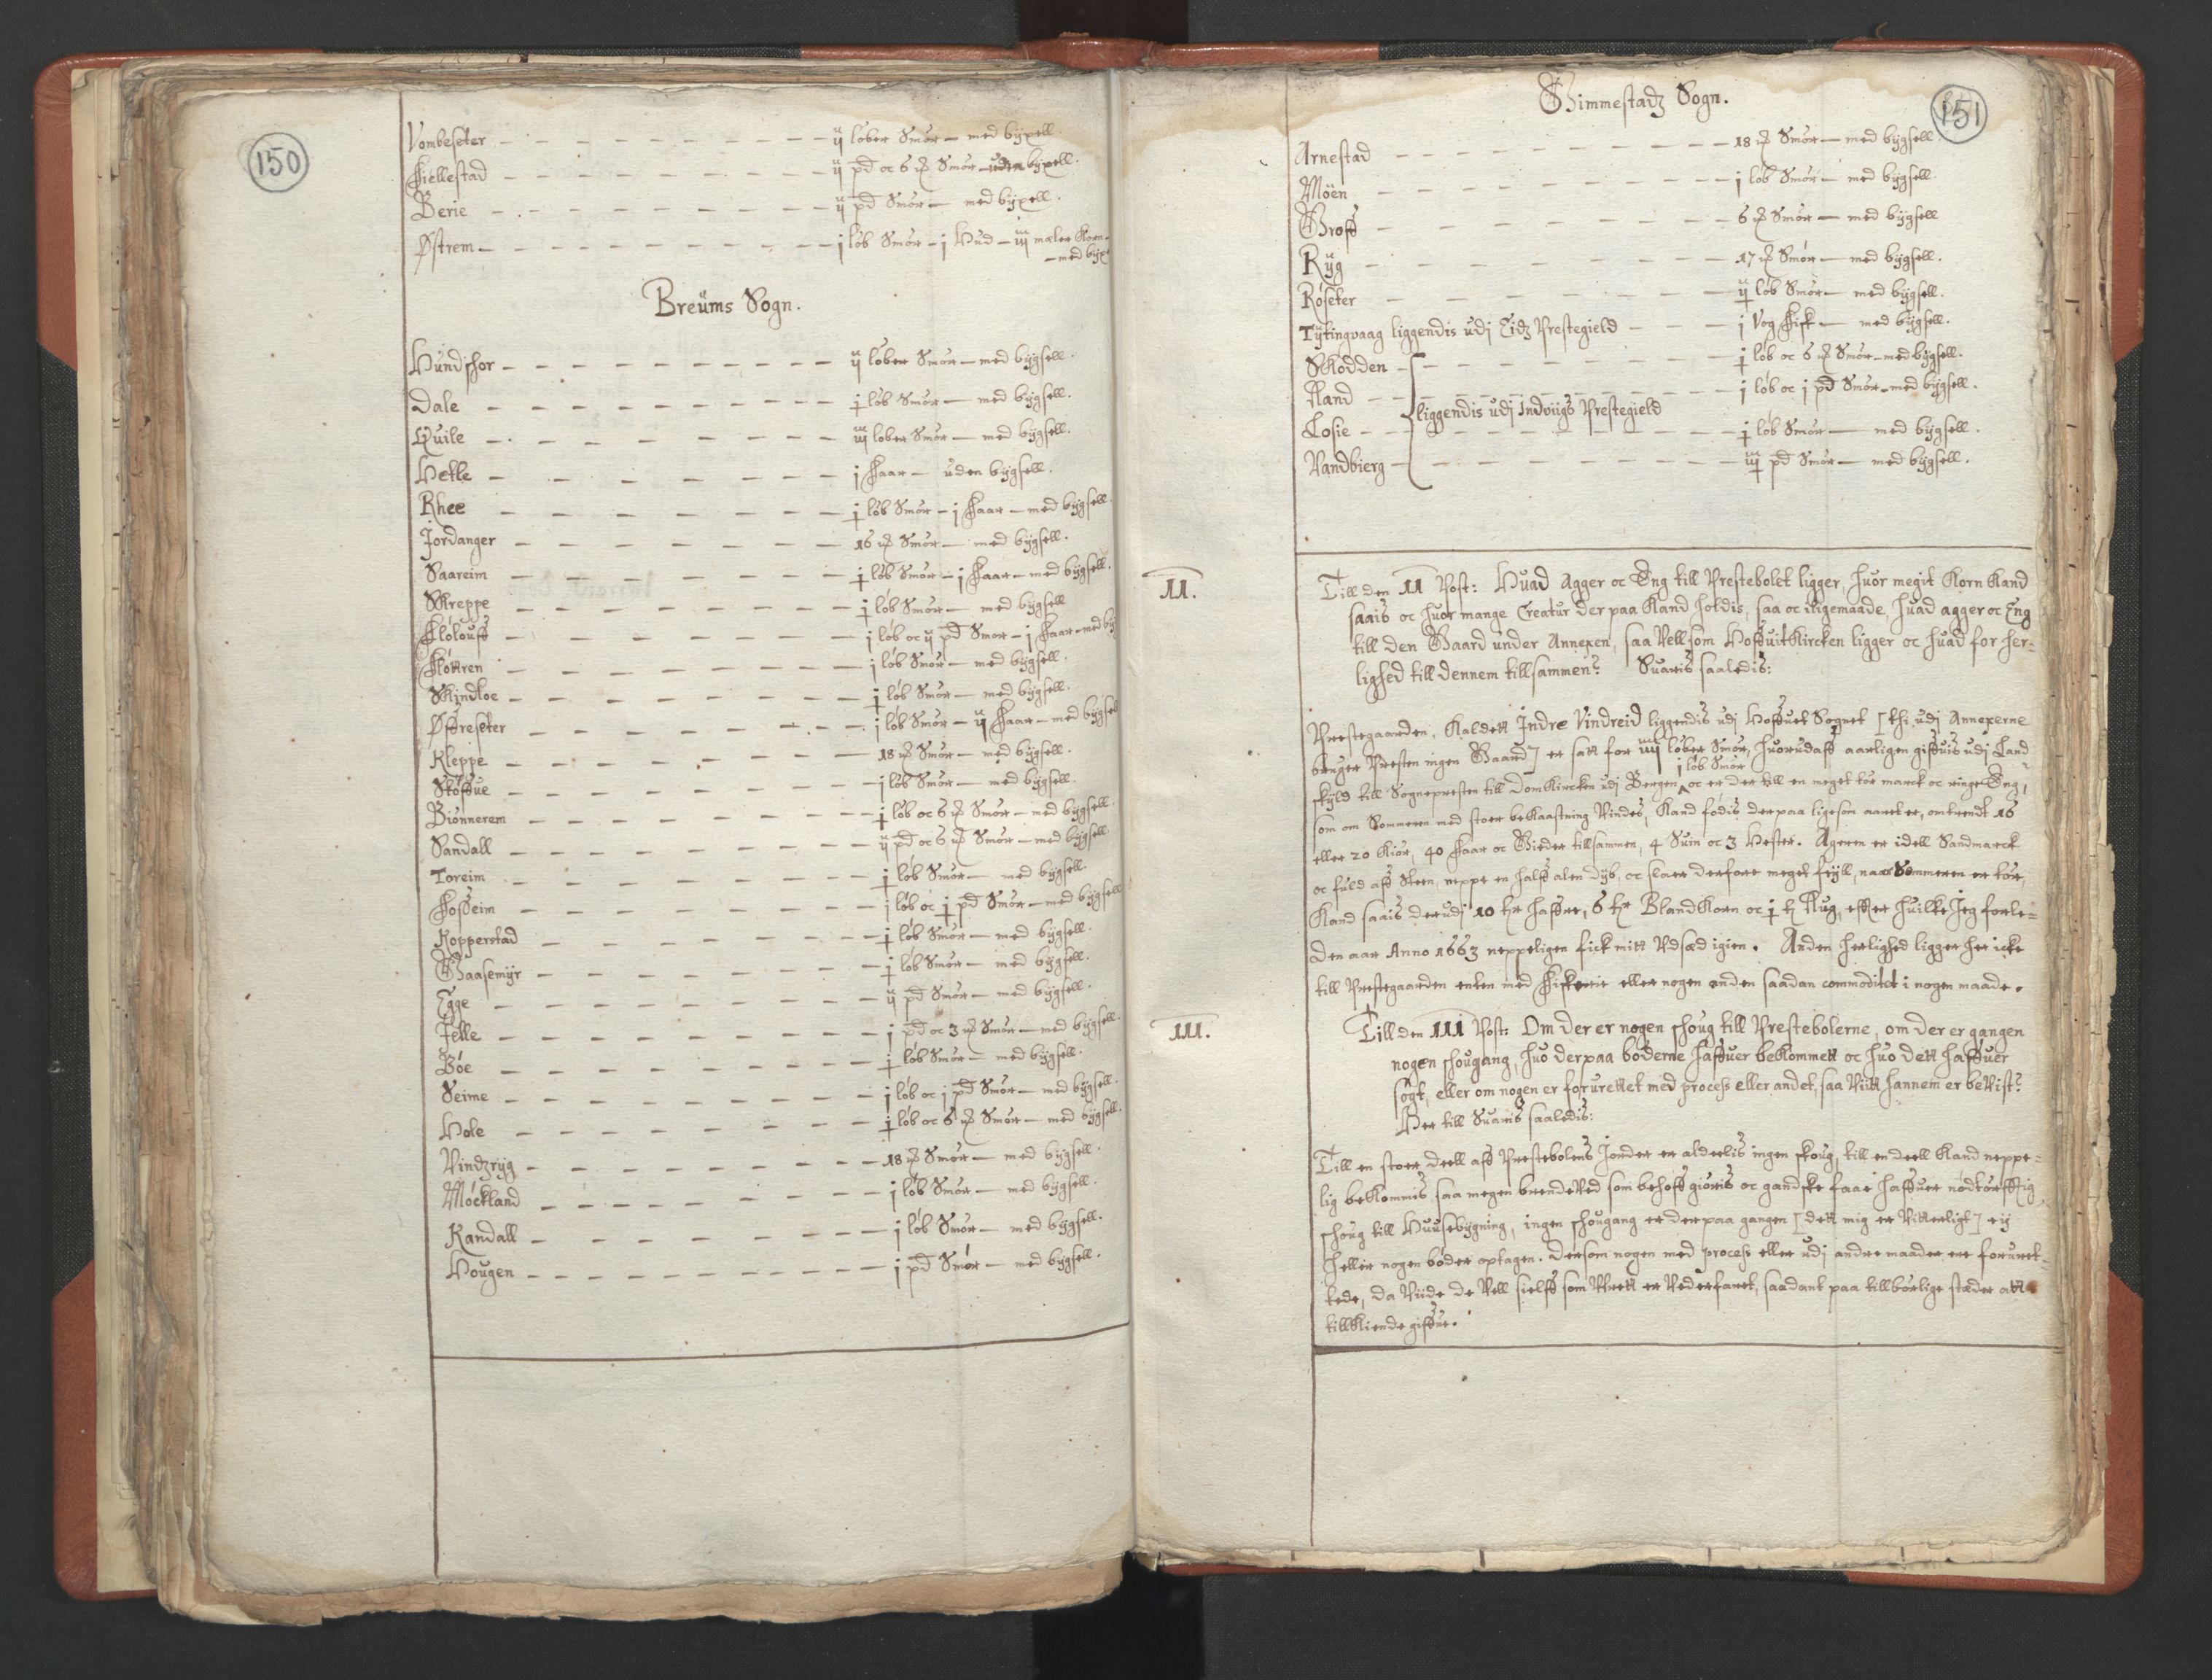 150
Vombeseter - - - - - - - - ij løber Smør - med bÿxell
Fiellestad - - - - - - - - ij pd oc 6 ℔ Smør - uden bÿxell.
Berie - - - - - - - - ij pd Smør - med bÿxell.
Østrem - - - - - - - - j løb Smør - j Hud - iij mæler Korn -
- med bÿx
Breums Sogn.
Hundshor - - - - - - - - ij løber Smør - med bÿgsell.
Dale - - - - - - - - løb Smør - med bÿgsell.
Quile - - - - - - - - løber Smør - med bÿgsell.
Hetle - - - - - - - - j Faar - uden bÿgsell.
Rhee - - - - - - - - løb Smør - j Faar - med bÿgsell.
Jordanger - - - - - - - - 16 ℔ Smør - med bÿgsell.
Saareim - - - - - - - - løb Smør - j Faar - med bÿgsell.
Skreppe - - - - - - - - løb Smør - med bÿgsell
Flølouff - - - - - - - - j løb oc ij pd Smør - j Faar - med bÿ
Fløttren - - - - - - - - j løb Smør - med bÿgsell.
Skindloe - - - - - - - - løb Smør - med bÿgsell.
Øffreseter - - - - - - - - j løb Smør - ij Faar - med bÿgsel
Kleppe - - - - - - - - 18 ℔ Smør - med bÿgsell.
Støffue - - - - - - - - j løb Smør - med bÿgsell.
Biønnerem - - - - - - - - løb oc 6 ℔ Smør - med bÿgsell.
Sandall - - - - - - - - ij pd oc 6 ℔ Smør - med bÿgsell
Toreim - - - - - - - - løb Smør - med bÿgsell
Fosseim - - - - - - - - j løb oc pd Smør - med bÿgsell
Kopperstad - - - - - - - - løb Smør - med bÿgsell.
Gaasemÿr - - - - - - - - løb Smør - med bÿgsell.
Egge - - - - - - - - ij pd Smør - med bÿgsell.
Felle - - - - - - - - j pd oc 3 ℔ Smør - med bÿgsell.
Bøe - - - - - - - - løb Smør - med bÿgsell.
Seime - - - - - - - - j løb oc j pd Smør - med bÿgsell.
Hole - - - - - - - - løb oc 6 ℔ Smør - med bÿgsell.
Vindzrÿg - - - - - - - - 18 ℔ Smør - med bÿgsell.
Møckland - - - - - - - - j løb Smør - med bÿgsell.
Randall - - - - - - - - j løb Smør - med bÿgsell.
Hougen - - - - - - - - j pd Smør - med bÿgsell.
151
Gimmestadz Sogn.
Arnestad - - - - - - - - 18 ℔ Smør - med bÿgsell.
Møen - - - - - - - - j løb Smør - med bÿgsell.
Groff - - - - - - - - 6 ℔ Smør - med bÿgsell
Rÿg - - - - - - - - 17 ℔ Smør - med bÿgsell.
Røseter - - - - - - - - løb Smør - med bÿgsell.
Tÿtingvaag liggendis udj Eidz Prestegield - - - j Vog Fisk - med bÿgsell.
Skodden - - - - - - - - løb oc 6 ℔ Smør - med bÿgsell.
Aand - - - - - - - - j løb oc j pd Smør - med bÿgsell.
liggendis udj Indviigs Prestegield
Losie - - - - - - - - løb Smør - med bÿgsell.
Vandbierg - - - - - - - - pd Smør - med bÿgsell.
II.
Till den II Post: Huad Agger oc Eng till Prestebolet ligger, huor megit Korn Kand
saais oc huor mange Creatur der paa Kand holdis, saa oc iligemaade, huad agger oc Eng
till den Gaard under Annexen, saa Vell som Hoffuit Kircken ligger oc huad for her-
lighed till dennem tillsammen? Suaris saaledis:
Prestegaarden, Kaldett Indre Vindreid liggendis udj Hoffuet Sognet [thi udj Annexerne
bruger Presten ingen Gaard] er satt for iiij løber Smør, huorudaff aarligen giffuis udj Land
j løb Smør
skÿld till Sognepresten till DomKircken udj Bergen, oc er der till en meget tør marck oc ringe Eng,
som om Sommeren med stoer bekaastning Vindes, Kand fødis derpaa ligesom aaret er, omtrendt 16
eller 20 Kiør, 40 Faar oc Gieder tillsammen, 4 Suin oc 3 Hester. Ageren er idell Sandmarck
oc fuld aff Steen, neppe en halff alen dÿb, oc slaer derfore meget feÿll, naar Sommeren er tør,
Kand saais derudj 10 tr haffre, 6 tr BlandKorn oc t Rug, effter huilke Jeg forle-
den aar Anno 1663 neppeligen fick mitt Udsæd igien. Anden herlighed ligger her icke
till Prestegaarden enten med Fiskerie eller nogen anden saadan commoditet i nogen maade.
III.
Till den III Post: Om der er nogen skoug till Prestebolerne, om der er gangen
nogen skougang, huo derpaa bøderne haffuer bekommett oc huo dett haffuer
søgt, eller om nogen er forurettet med process eller andet, saa Vitt hannem er beVist?
Her till Suaris saaledis:
Till en stoer deell aff Prestebolens Jorder er alderlis ingen skoug, till en deell Kand neppe-
lig bekommis saa megen brendeVed som behoff giøris oc gandske faae haffuer nødtørfftig
skoug till Huusebÿgning, ingen skougang er der paa gangen [dett mig er Vitterligt] eÿ
heller nogen bøder optagen. Dersom nogen med process eller udj andre maader ere foruret-
tede, da Viide de Vell sielff som Urett er Vederfaret, saadant paa tillbørlige stæder att
tillkiende giffue.